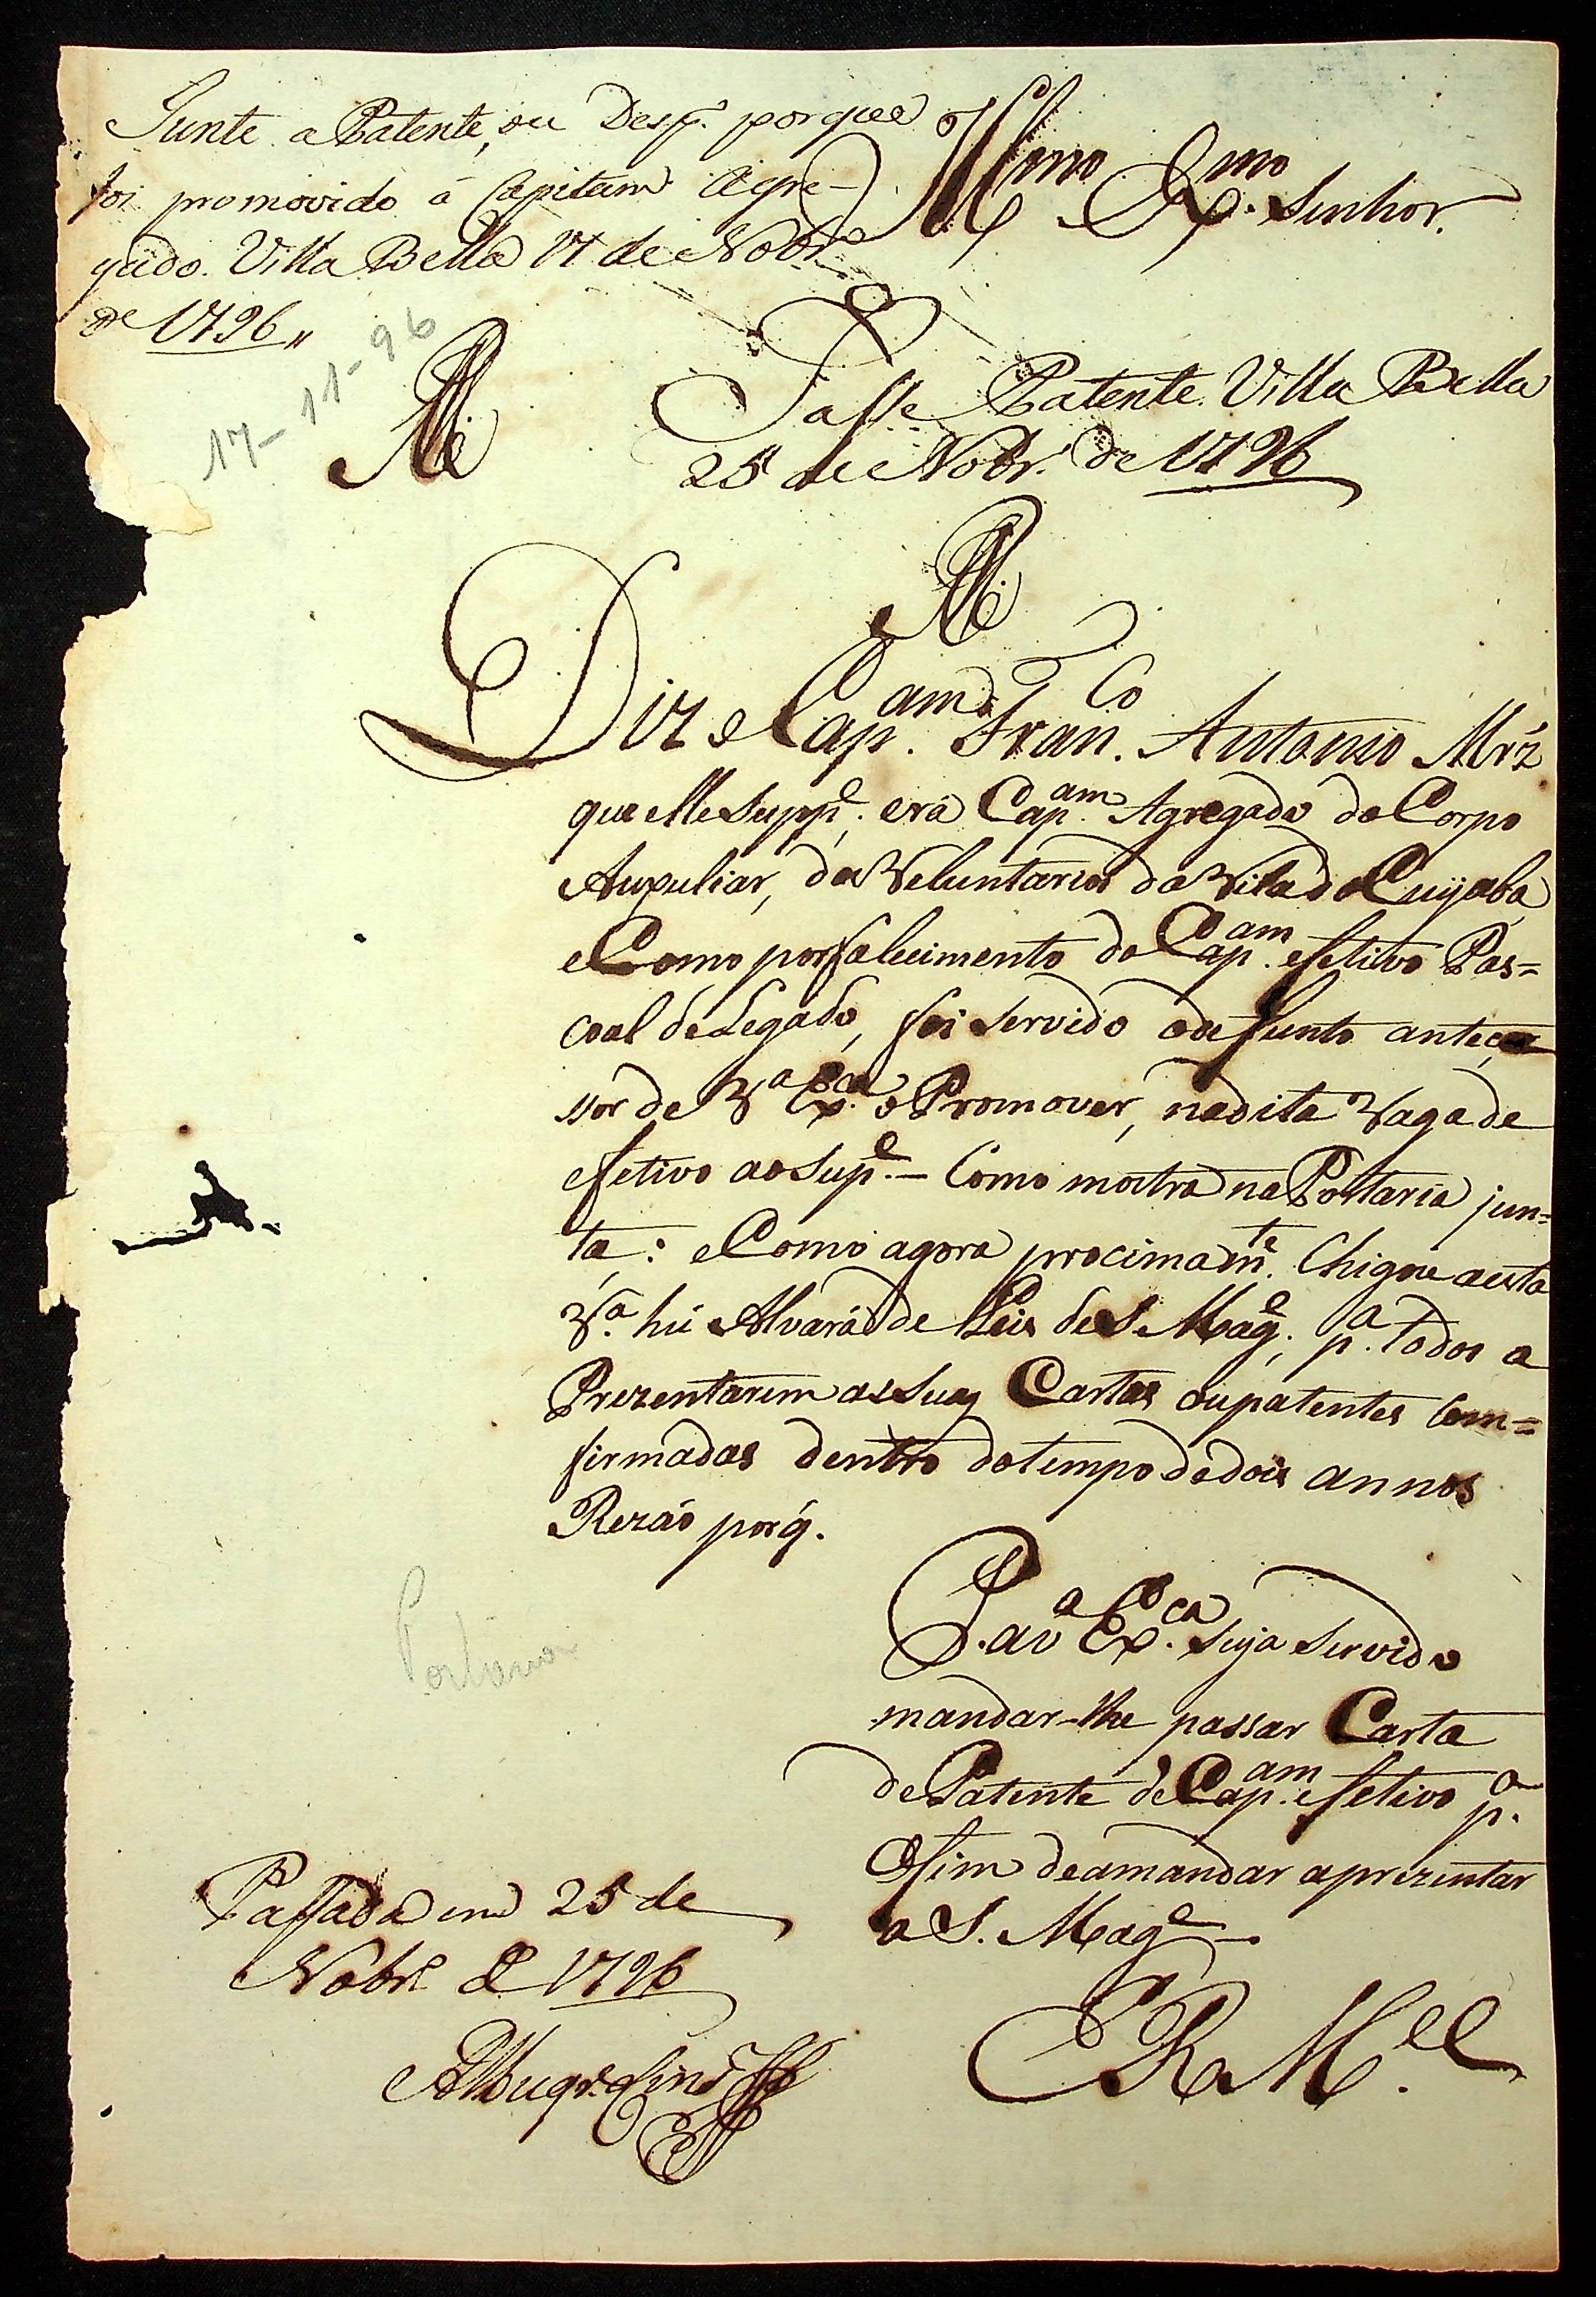 Junte a Patente, ou Desp.º porque
foi promovido á Capitam Agre-
gado. Villa Bella 17 de Nobr.º
de 1796„
17-11-96
Ill.mo Ex.mo Senhor.
Passe Patente. Villa Bella
25 de Nobr.º de 1796
Diz o Cap.am Fran.co Antonio Mrz̃
que elle Supp.e era Cap.am Agregado do Corpo
Auxuliar, da Veluntarios da Vila do Cuyaba
e Como por falecimento do Cap.am efetivo Pas=
coal deLegado, foi servido o defunto anteçe
ssor de V.a Ex.ca o Promover, nadita Vaga de
efetivo ao Sup.e – Como mostra na Portaria jun=
ta: e Como agora procimam.te Chigou aesta
V.a hú Alvará de Leis de S. Mag.e, p.a todos a
Prezentarem as suas Cartas ou patentes Com=
firmadas dentro do tempo de dois annos
Rezáo porq̃.
P. a V.a Ex.ca seja servido
mandar-lhe passar Carta
de Patente de Cap.am efetivo p.a
Ofim de amandar aprezentar
a S. Mag.e
E R M.ce
Portaria
Passada em 25 de
Nobr.e de 1796